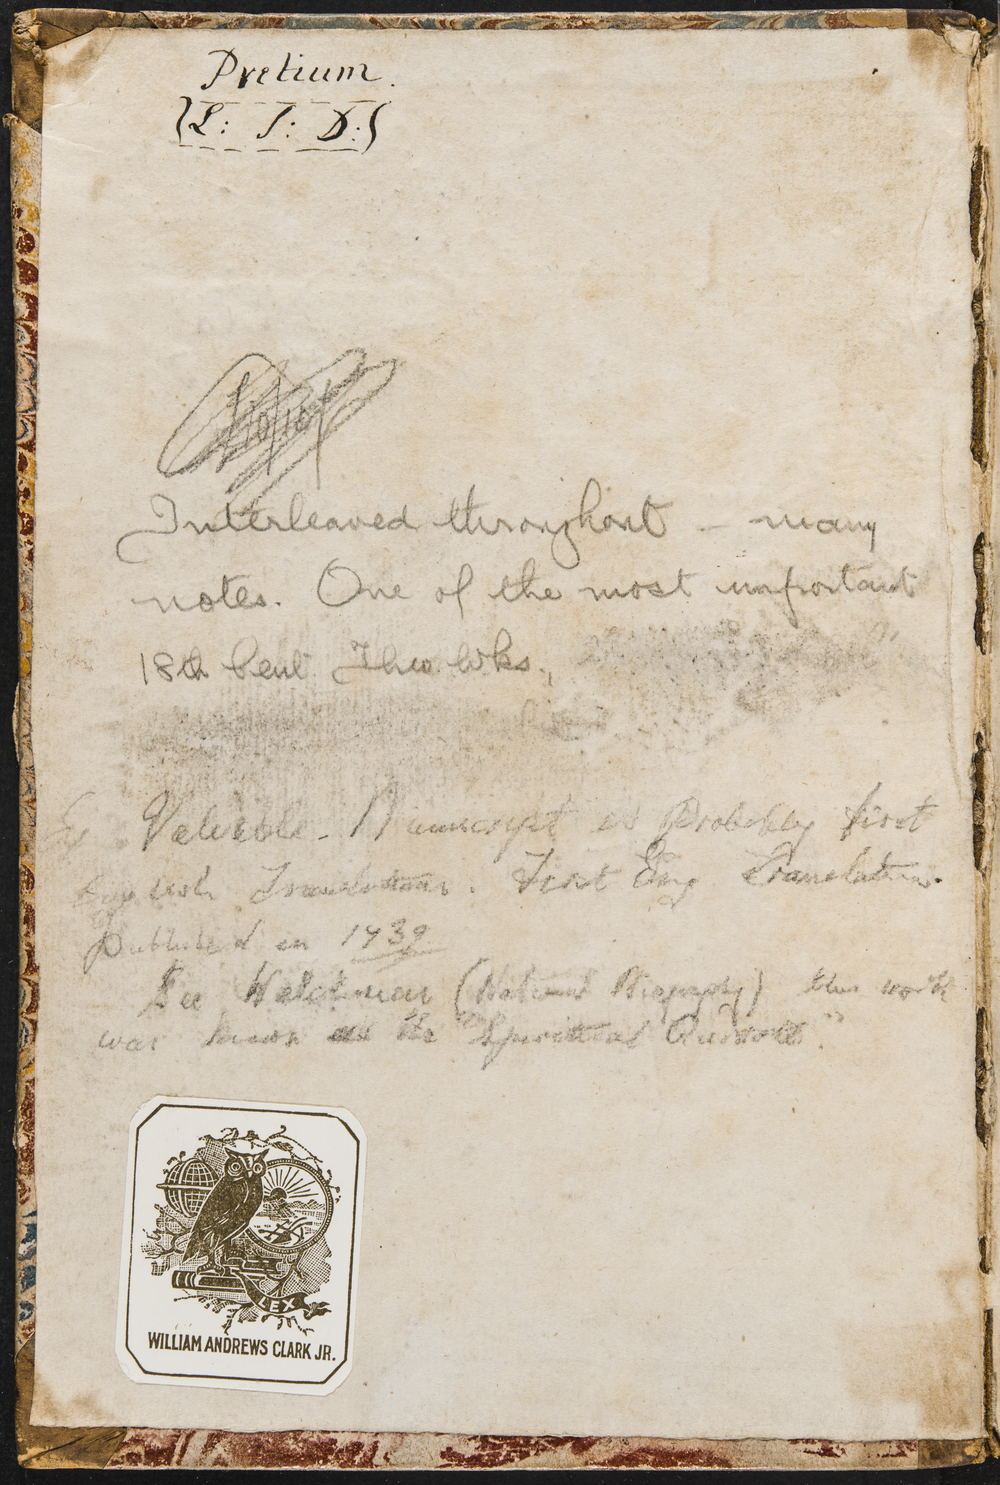 Pretium.
(L: S: D:)
Interleaved throughout – many
notes. One of the most important
18th Cent. Theo. Wks.,
Valuable – Manuscript is Probably first
English Translation. First Eng Translation
Published in 1739
See Welchman (National Biography) this work
was known as the "Spiritual
LEX
WILLIAM ANDREWS CLARK JR.